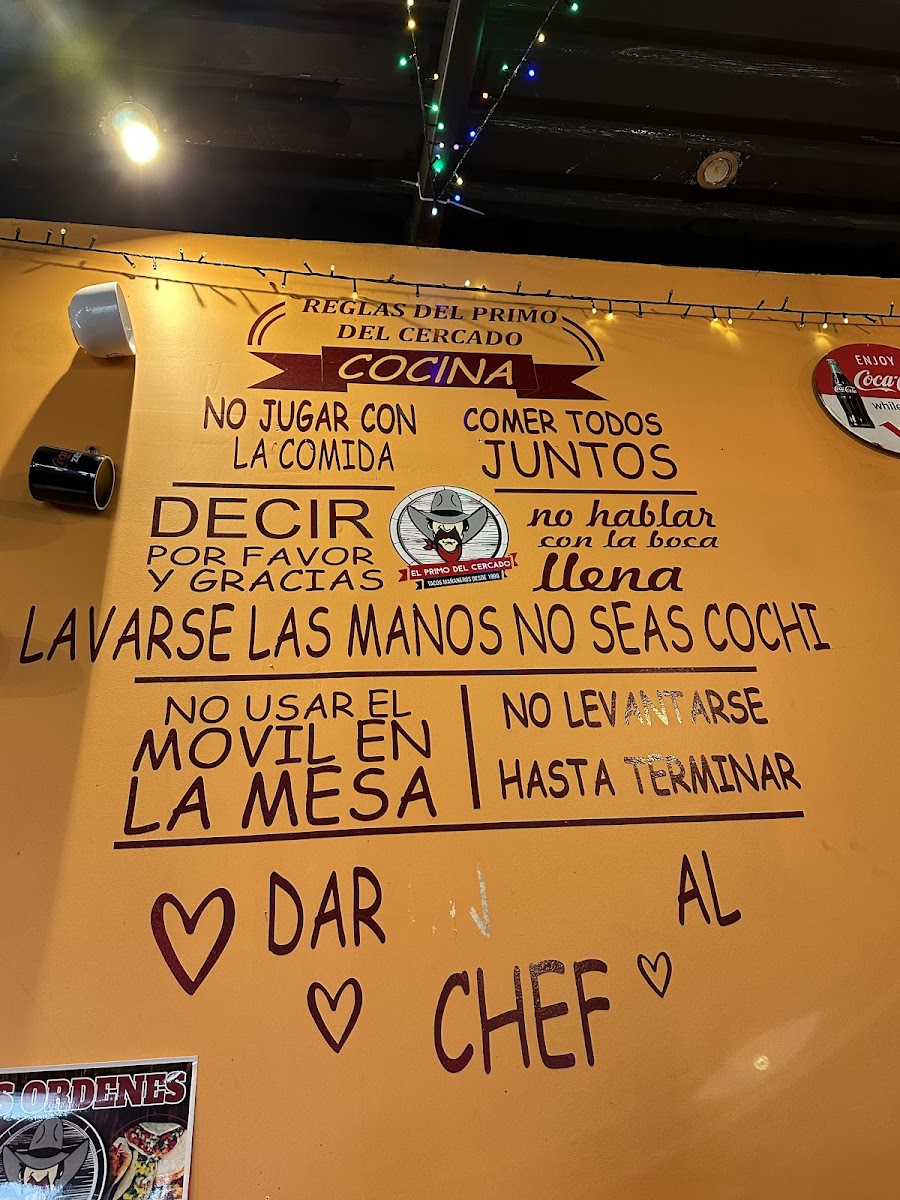 REGLAS DEL PRIMO
DEL CERCADO
COCINA
NO JUGAR CON
LA COMIDA
COMER TODOS
JUNTOS
DECIR
POR FAVOR
Y GRACIAS
EL PRIMO DEL CERCADO
no hablar
con la boca
llena
LAVARSE LAS MANOS NO SEAS COCHI
NO USAR EL
MOVIL EN
LA MESA
NO LEVANTARSE
HASTA TERMINAR
DAR AL
CHEF
ENJOY
Coca-
while
ORDENES